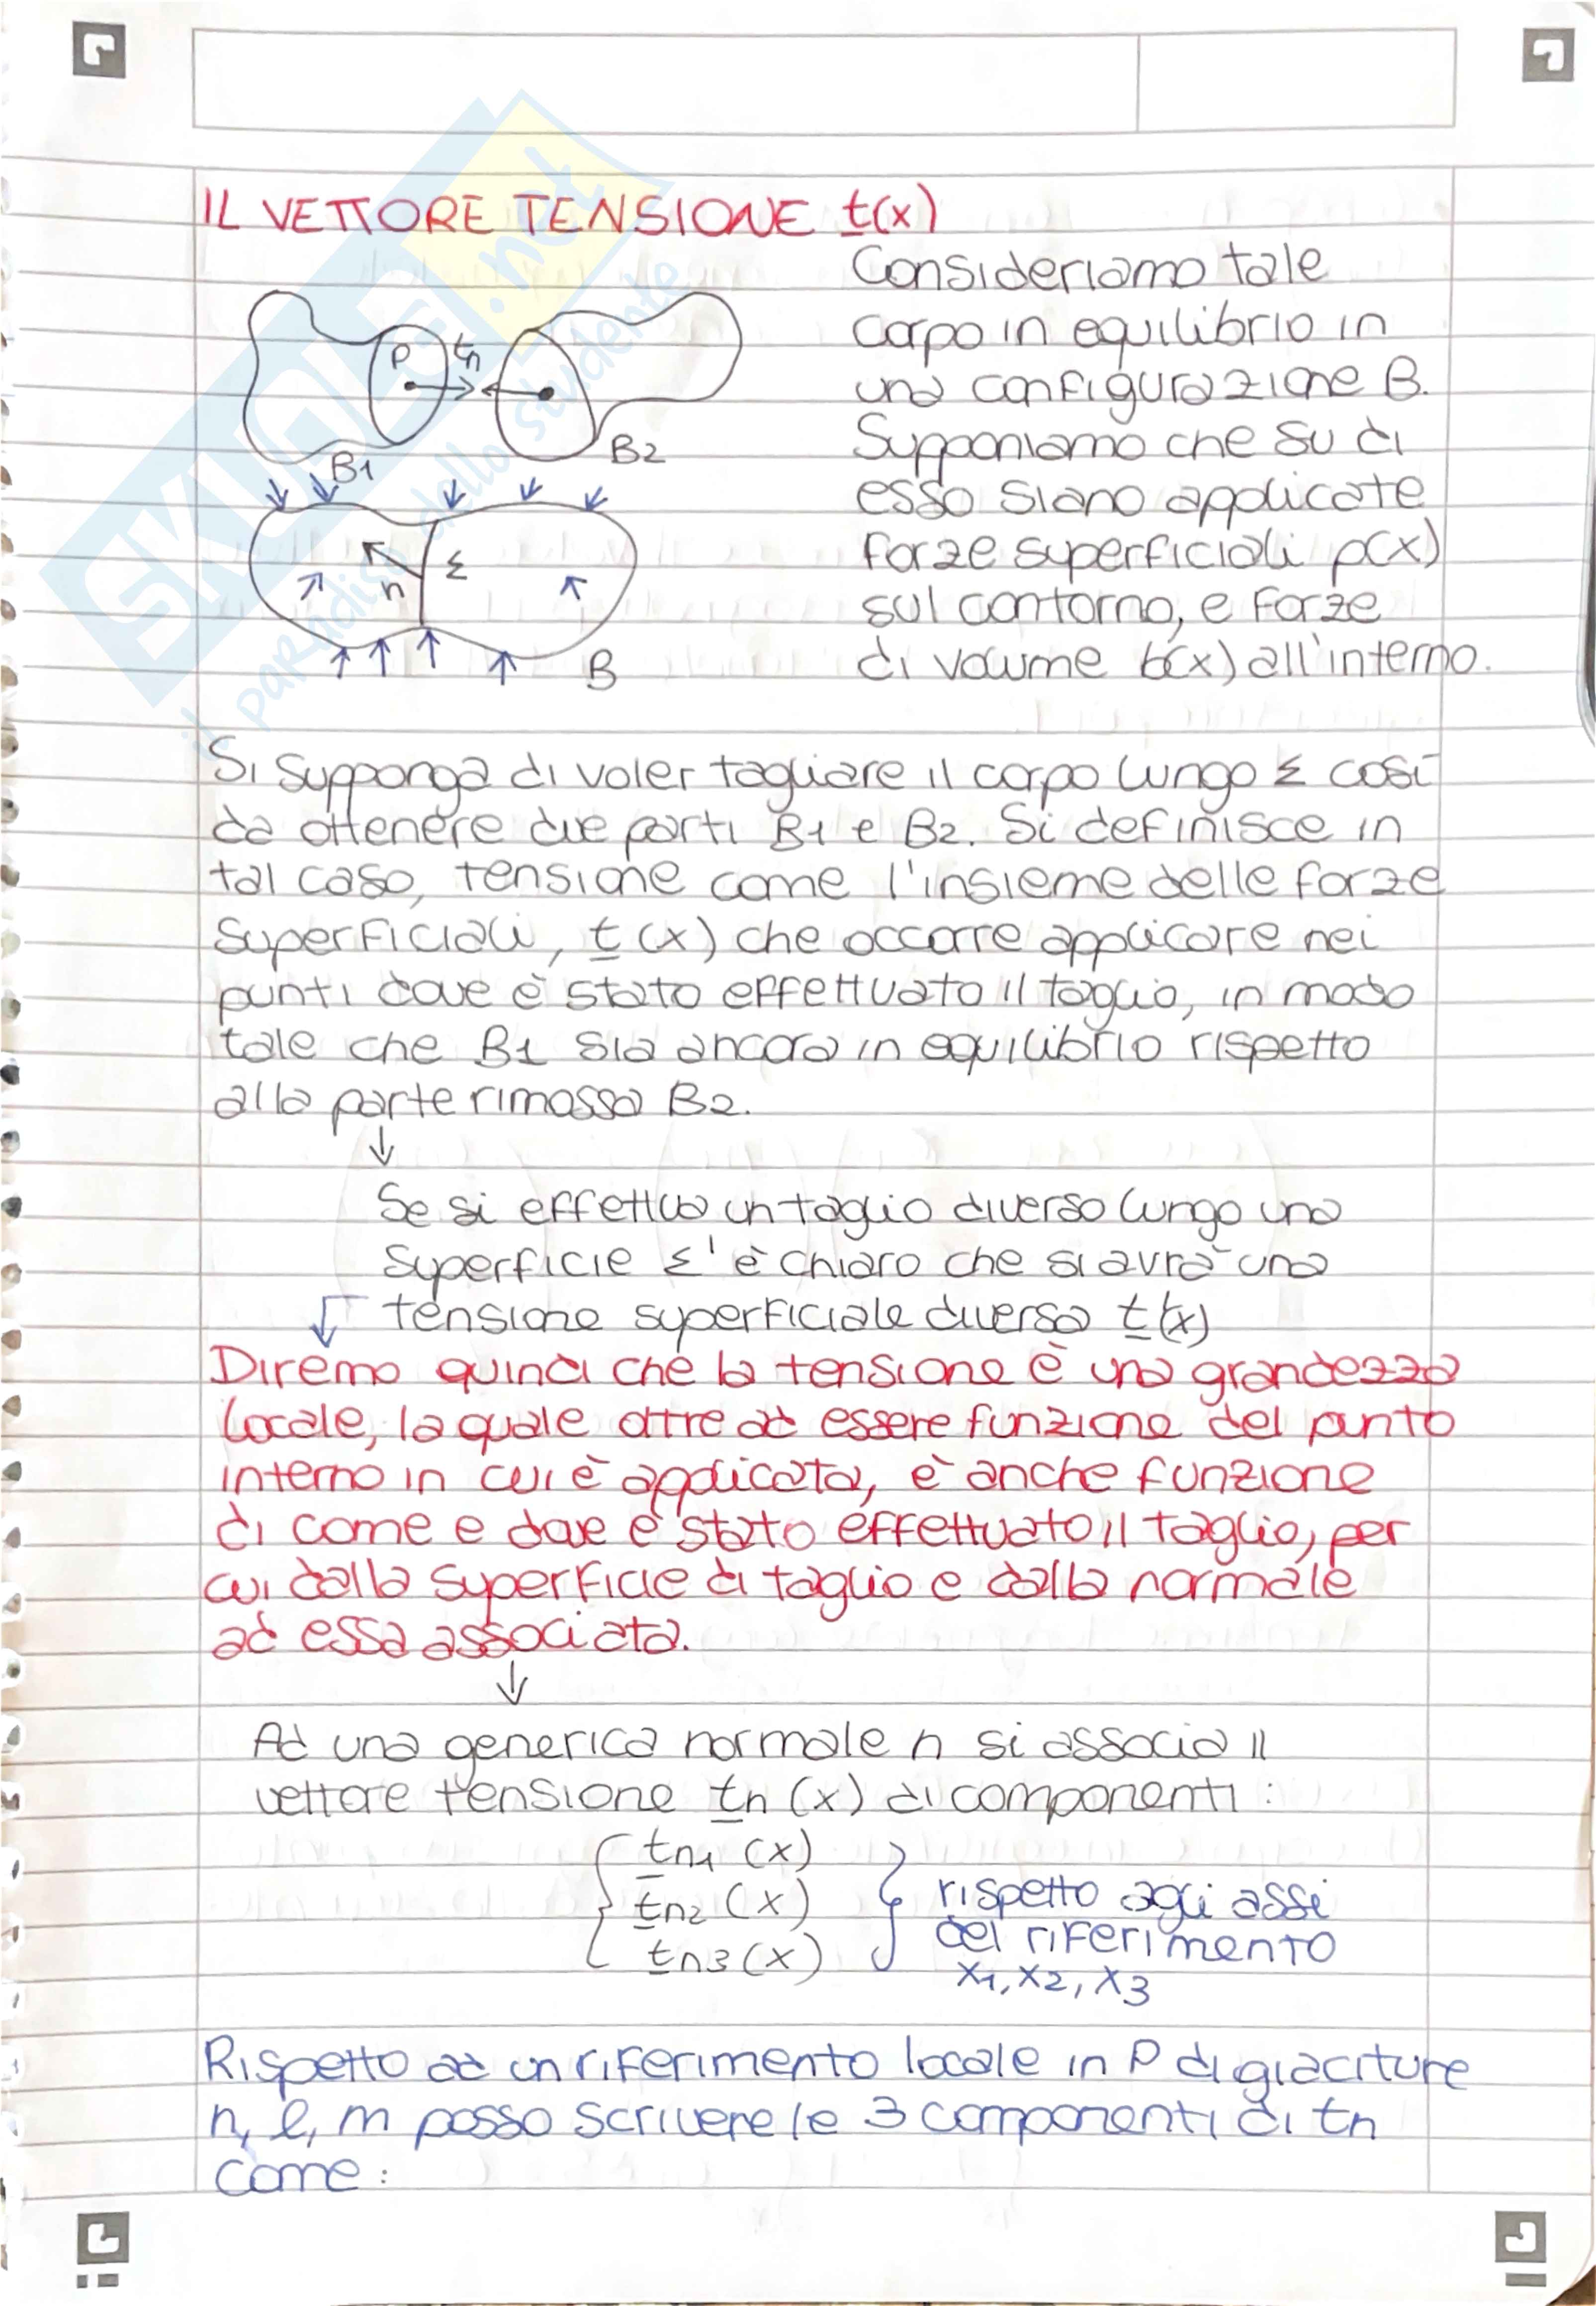 IL VETTORE TENSIONE t(x)
Consideriamo tale
corpo in equilibrio in
una configurazione B.
Supponiamo che su di
esso siano applicate
forze superficiali p(x)
sul contorno, e forze
di volume b(x) all'interno.
P tn
B1 B2
n Σ
B
Si supponga di voler tagliare il corpo lungo Σ così
da ottenere due parti B1 e B2. Si definisce in
tal caso, tensione come l'insieme delle forze
superficiali, t(x) che occorre applicare nei
punti dove è stato effettuato il taglio, in modo
tale che B1 sia ancora in equilibrio rispetto
alla parte rimossa B2.
↓
Se si effettua un taglio diverso lungo una
superficie Σ' è chiaro che si avrà una
tensione superficiale diversa t'(x)
Diremo quindi che la tensione è una grandezza
locale, la quale oltre ad essere funzione del punto
interno in cui è applicata, è anche funzione
di come e dove è stato effettuato il taglio, per
cui dalla superficie di taglio e dalla normale
ad essa associata.
↓
Ad una generica normale n si associa il
vettore tensione tn (x) di componenti:
tn1 (x)
tn2 (x)
tn3 (x)
rispetto agli assi
del riferimento
x1, x2, x3
Rispetto ad un riferimento locale in P di giaciture
n, l, m posso scrivere le 3 componenti di tn
come:
SKUOLA.net
il paradiso dello studente